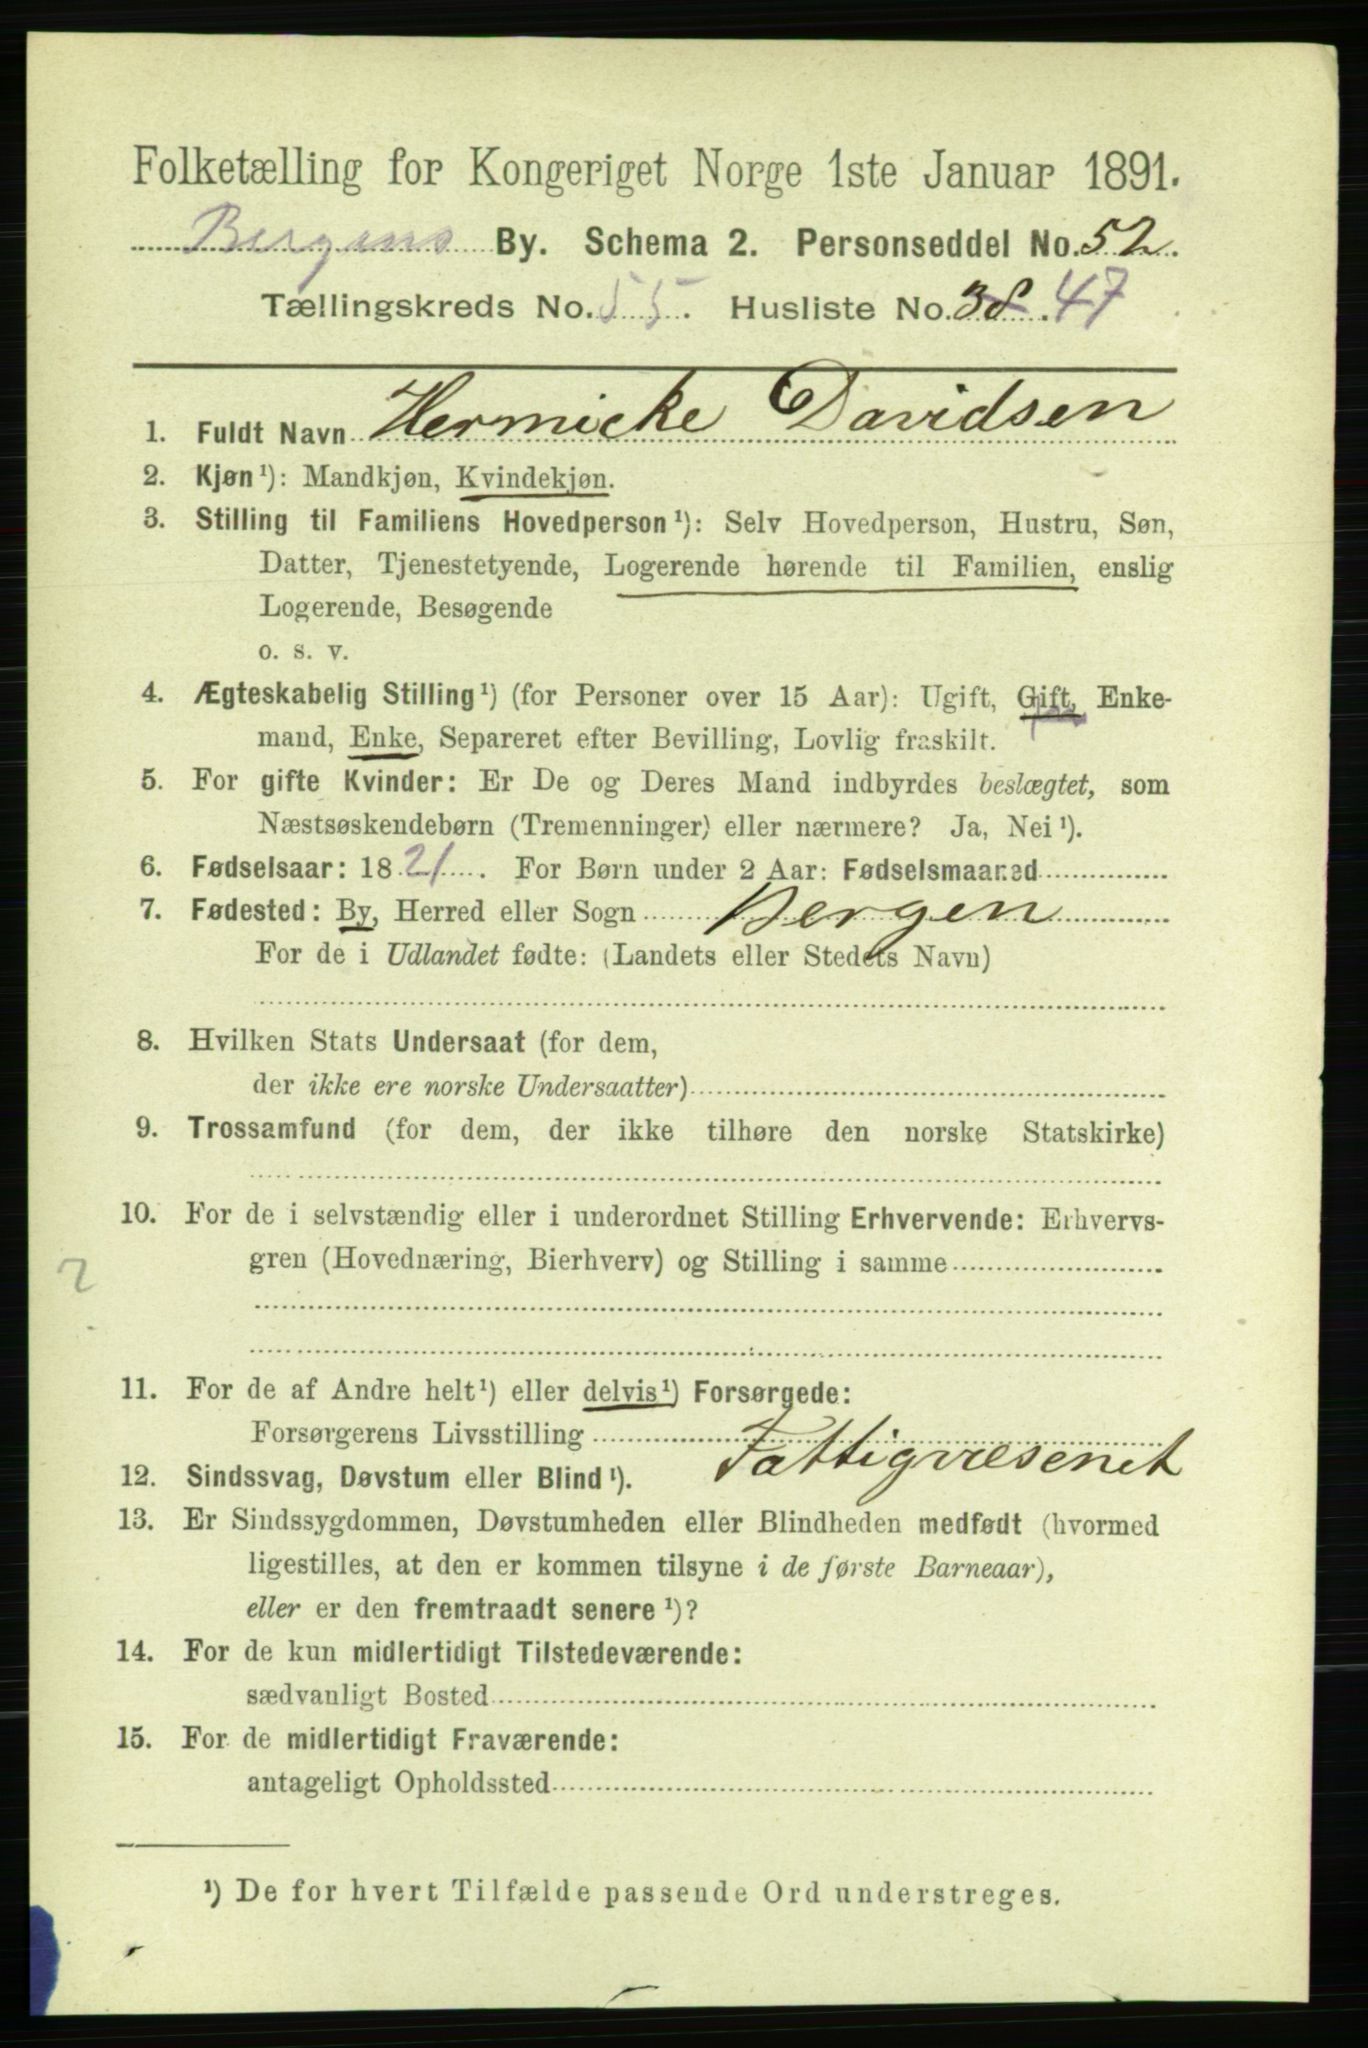 Folketælling for Kongeriget Norge 1ste Januar 1891.
Bergens By. Schema 2. Personseddel No. 52.
Tællingskreds No. 55. Husliste No. 38. 47
1. Fuldt Navn Hermicke Davidsen
2. Kjøn¹): Mandkjøn, Kvindekjøn.
3. Stilling til Familiens Hovedperson¹): Selv Hovedperson, Hustru, Søn,
Datter, Tjenestetyende, Logerende hørende til Familien, enslig
Logerende, Besøgende
o. s. v.
4. Ægteskabelig Stilling¹) (for Personer over 15 Aar): Ugift, Gift, Enke-
mand, Enke, Separeret efter Bevilling, Lovlig fraskilt.
5. For gifte Kvinder: Er De og Deres Mand indbyrdes beslægtet, som
Næstsøskendebørn (Tremenninger) eller nærmere? Ja, Nei¹).
6. Fødselsaar: 1821. For Børn under 2 Aar: Fødselsmaaned
7. Fødested: By, Herred eller Sogn Bergen
For de i Udlandet fødte: (Landets eller Stedets Navn)
8. Hvilken Stats Undersaat (for dem,
der ikke ere norske Undersaatter)
9. Trossamfund (for dem, der ikke tilhøre den norske Statskirke)
10. For de i selvstændig eller i underordnet Stilling Erhvervende: Erhvervs-
gren (Hovednæring, Bierhverv) og Stilling i samme
2
11. For de af Andre helt¹) eller delvis¹) Forsørgede:
Forsørgerens Livsstilling Fattigvæsenet
12. Sindssvag, Døvstum eller Blind¹).
13. Er Sindssygdommen, Døvstumheden eller Blindheden medfødt (hvormed
ligestilles, at den er kommen tilsyne i de første Barneaar),
eller er den fremtraadt senere¹)?
14. For de kun midlertidigt Tilstedeværende:
sædvanligt Bosted
15. For de midlertidigt Fraværende:
antageligt Opholdssted
¹) De for hvert Tilfælde passende Ord understreges.